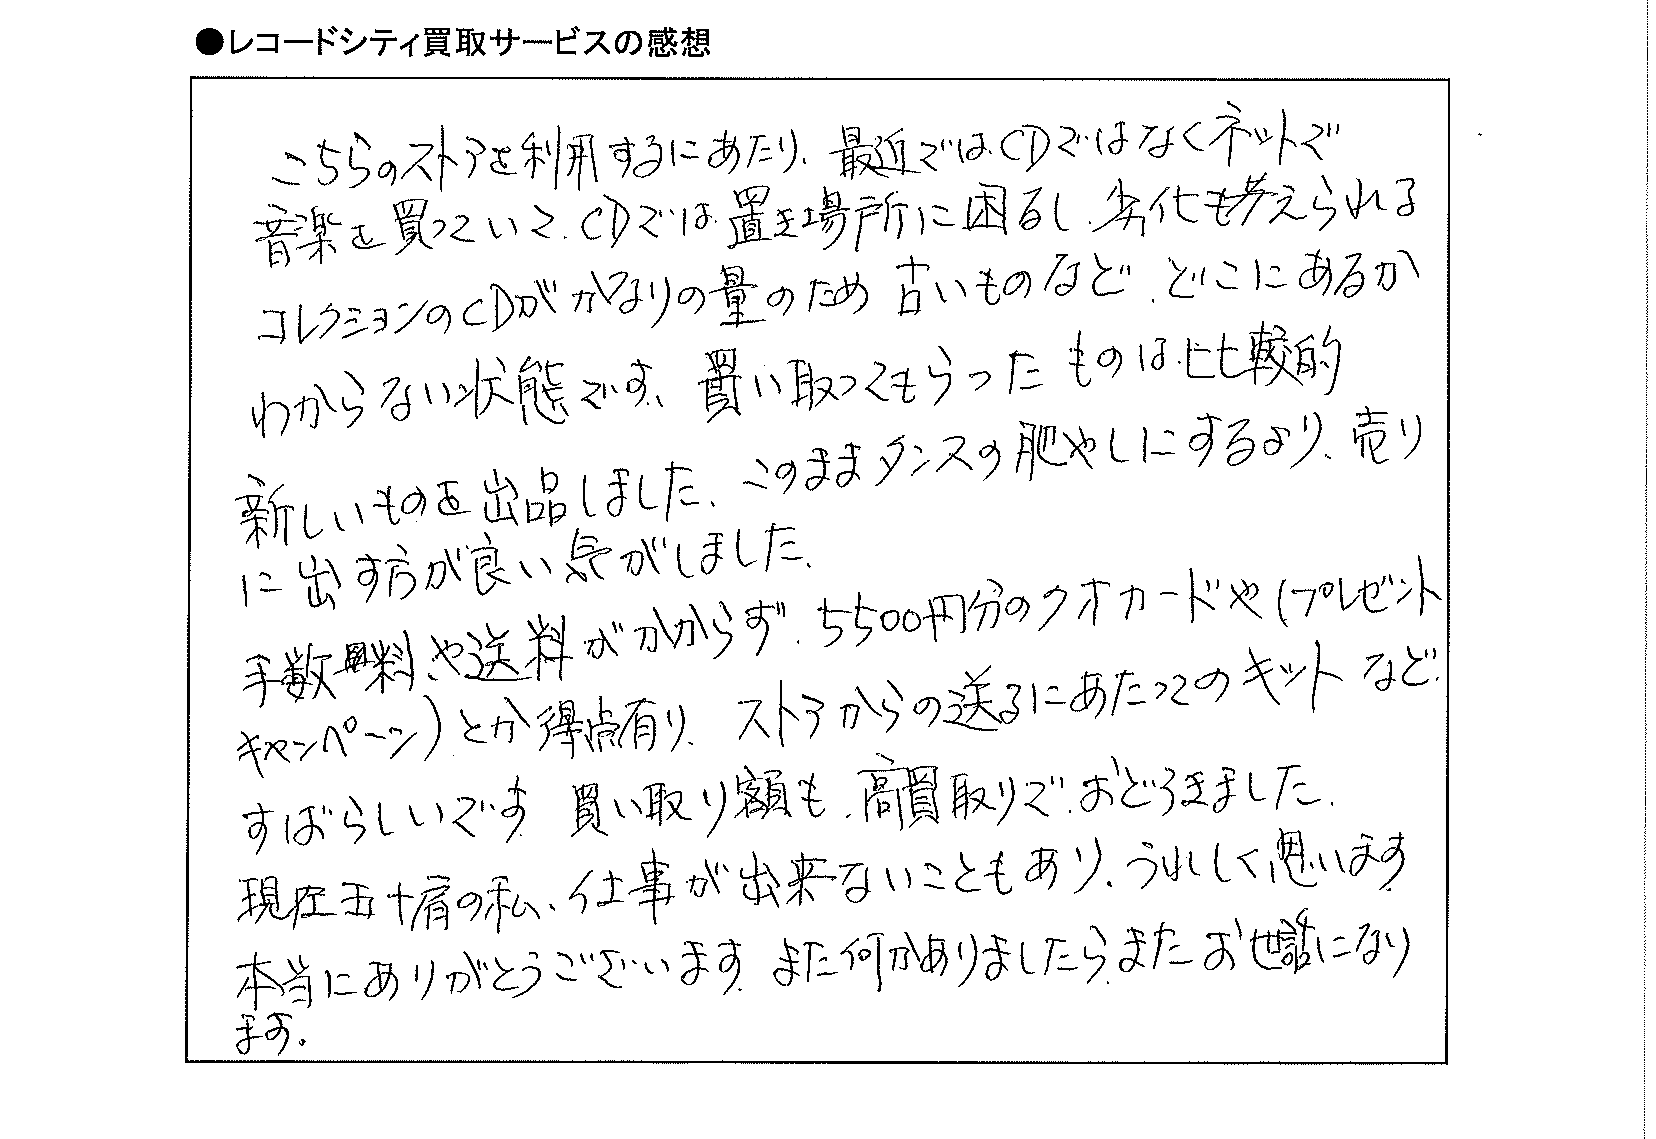 ●レコードシティ買取サービスの感想
こちらのストアを利用するにあたり、最近では、CDではなくネットで
音楽を買っていて、CDでは置き場所に困るし、劣化も考えられる
コレクションのCDがかなりの量のため古いものなど、どこにあるか
わからない状態です、買い取ってもらったものは比較的
新しいものを出品しました、このままタンスの肥やしにするより、売り
に出す方が良い気がしました、
手数料、や送料がかからず、5500円分のクオカードや(プレゼント
キャンペーン)とか得点有り、ストアからの送るにあたってのキットなど、
すばらしいです、買い取り額も、高買取りで、おどろきました、
現在五十肩の私、仕事が出来ないこともあり、うれしく思います、
本当にありがとうございます、また何かありましたら、またお世話になり
ます。